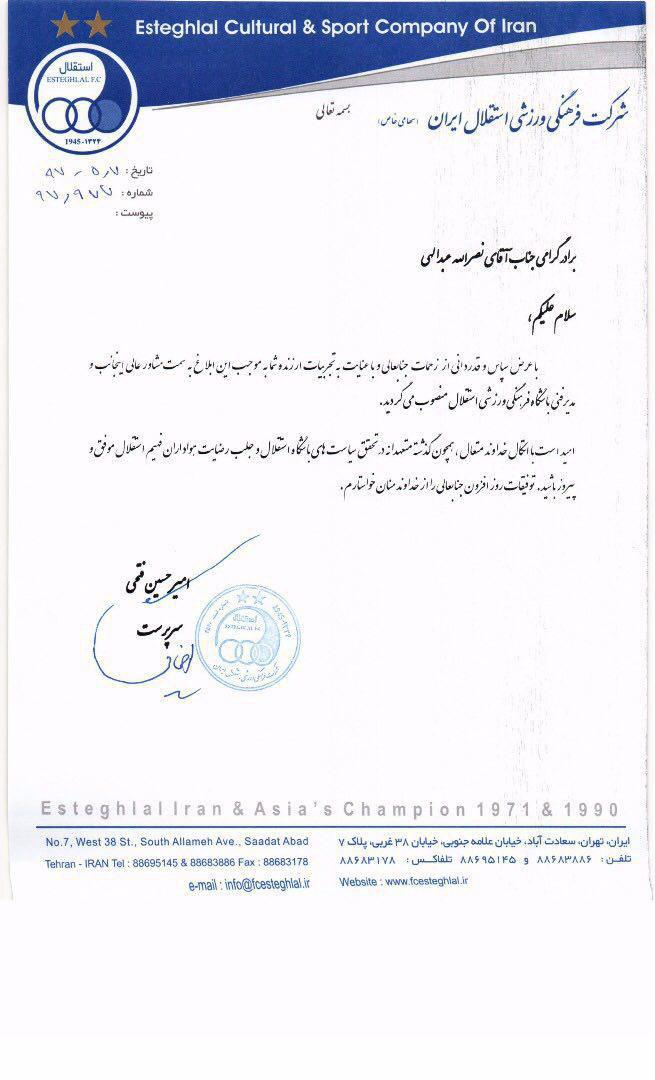 Esteghlal Cultural & Sport Company Of Iran
استقلال
ESTEGHLAL F.C
1945-۱۳۲۴
شرکت فرهنگی ورزشی استقلال ایران (سهامی خاص)
بسمه تعالی
تاریخ : ۹۷ - ۵٫۷
شماره : ۹۷٫۹۷۲
پیوست :
برادر گرامی جناب آقای نصرالله عبدالهی
سلام علیکم ،
با عرض سپاس و قدردانی از زحمات جنابعالی و با عنایت به تجربیات ارزنده شما به موجب این ابلاغ به سمت مشاور عالی اینجانب و
مدیر فنی باشگاه فرهنگی ورزشی استقلال منصوب می گردید.
امید است با اتکال خداوند متعال ، همچون گذشته متعهدانه در تحقق سیاست های باشگاه استقلال و جلب رضایت هواداران فهیم استقلال موفق و
پیروز باشید. توفیقات روز افزون جنابعالی را از خداوند منان خواستارم.
امیر حسین فتحی
سرپرست
استقلال
ESTEGHLAL F.C
1945-۱۳۲۴
شرکت فرهنگی ورزشی استقلال ایران
Esteghlal Iran & Asia's Champion 1971 & 1990
No.7, West 38 St., South Allameh Ave., Saadat Abad
Tehran - IRAN Tel : 88695145 & 88683886 Fax : 88683178
e-mail : info@fcesteghlal.ir
ایران، تهران، سعادت آباد، خیابان علامه جنوبی، خیابان ۳۸ غربی، پلاک ۷
تلفن : ۸۸۶۸۳۸۸۶ و ۸۸۶۹۵۱۴۵ تلفاکس : ۸۸۶۸۳۱۷۸
Website : www.fcesteghlal.ir